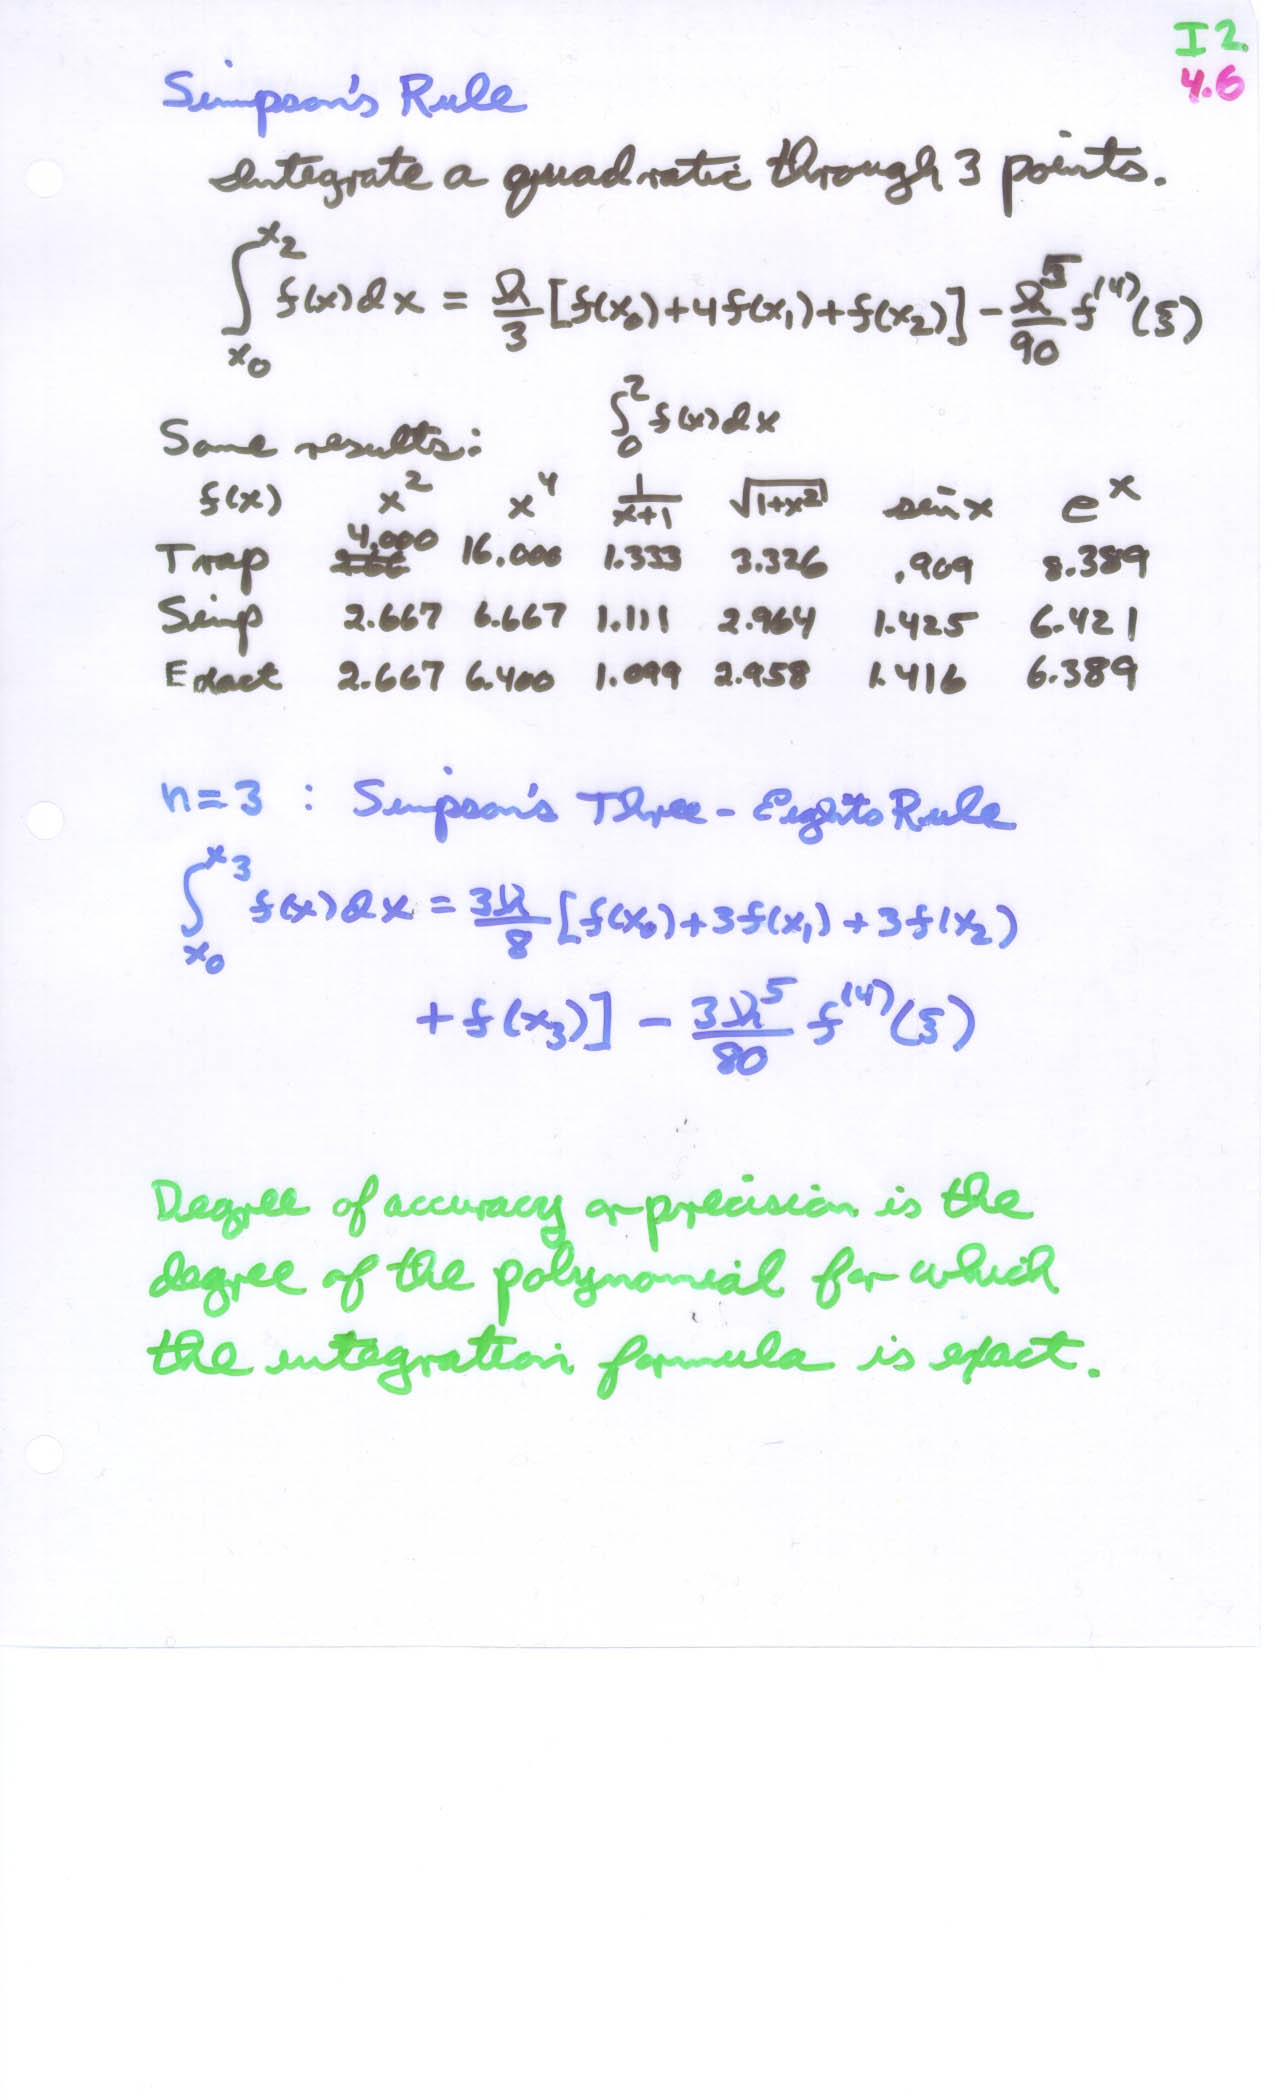 I 2.
4.6
Simpson's Rule
Integrate a quadratic through 3 points.
∫_{x_0}^{x_2} f(x)dx = h/3 [f(x_0)+4f(x_1)+f(x_2)] - h^5/90 f^{(4)}(ξ)
Some results: ∫_0^2 f(x)dx
f(x) x^2 x^4 1/(x+1) √(1+x^2) sin x e^x
Trap 4.000 16.000 1.333 3.326 .909 8.389
Simp 2.667 6.667 1.111 2.964 1.425 6.421
Exact 2.667 6.400 1.099 2.958 1.416 6.389
n=3 : Simpson's Three-Eights Rule
∫_{x_0}^{x_3} f(x)dx = 3h/8 [f(x_0)+3f(x_1)+3f(x_2)
+f(x_3)] - 3h^5/80 f^{(4)}(ξ)
Degree of accuracy or precision is the
degree of the polynomial for which
the integration formula is exact.